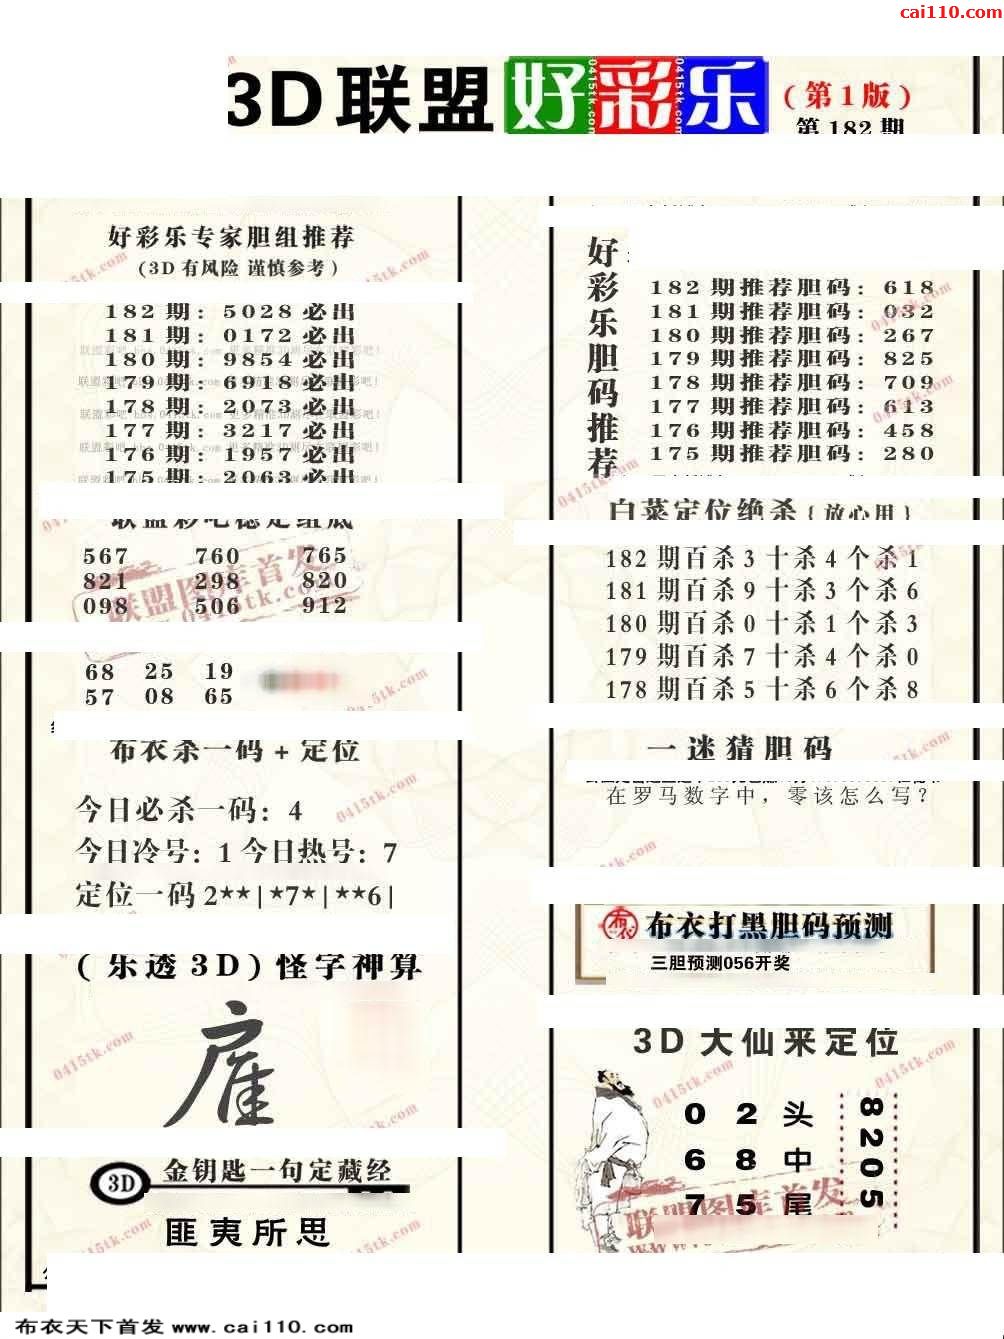 cai110.com
3D联盟好彩乐
(第1版)
第182期
好彩乐专家胆组推荐
(3D有风险 谨慎参考)
182期: 5028必出
181期: 0172必出
180期: 9854必出
179期: 6918必出
178期: 2073必出
177期: 3217必出
176期: 1957必出
175期: 2063必出
联盟彩吧稳定组底
567 760 765
821 298 820
098 506 912
68 25 19
57 08 65
布衣杀一码+定位
今日必杀一码: 4
今日冷号: 1 今日热号: 7
定位一码 2**|*7*|**6|
(乐透3D)怪字神算
3D
金钥匙一句定藏经
匪夷所思
好彩乐胆码推荐
182期推荐胆码: 618
181期推荐胆码: 032
180期推荐胆码: 267
179期推荐胆码: 825
178期推荐胆码: 709
177期推荐胆码: 613
176期推荐胆码: 458
175期推荐胆码: 280
白菜定位绝杀{放心用}
182期百杀3十杀4个杀1
181期百杀9十杀3个杀6
180期百杀0十杀1个杀3
179期百杀7十杀4个杀0
178期百杀5十杀6个杀8
一迷猜胆码
在罗马数字中，零该怎么写？
布衣
布衣打黑胆码预测
三胆预测056开奖
3D大仙来定位
0 2头
6 8中
7 5尾
8205
联盟图库首发
0415tk.com
布衣天下首发 www.cai110.com